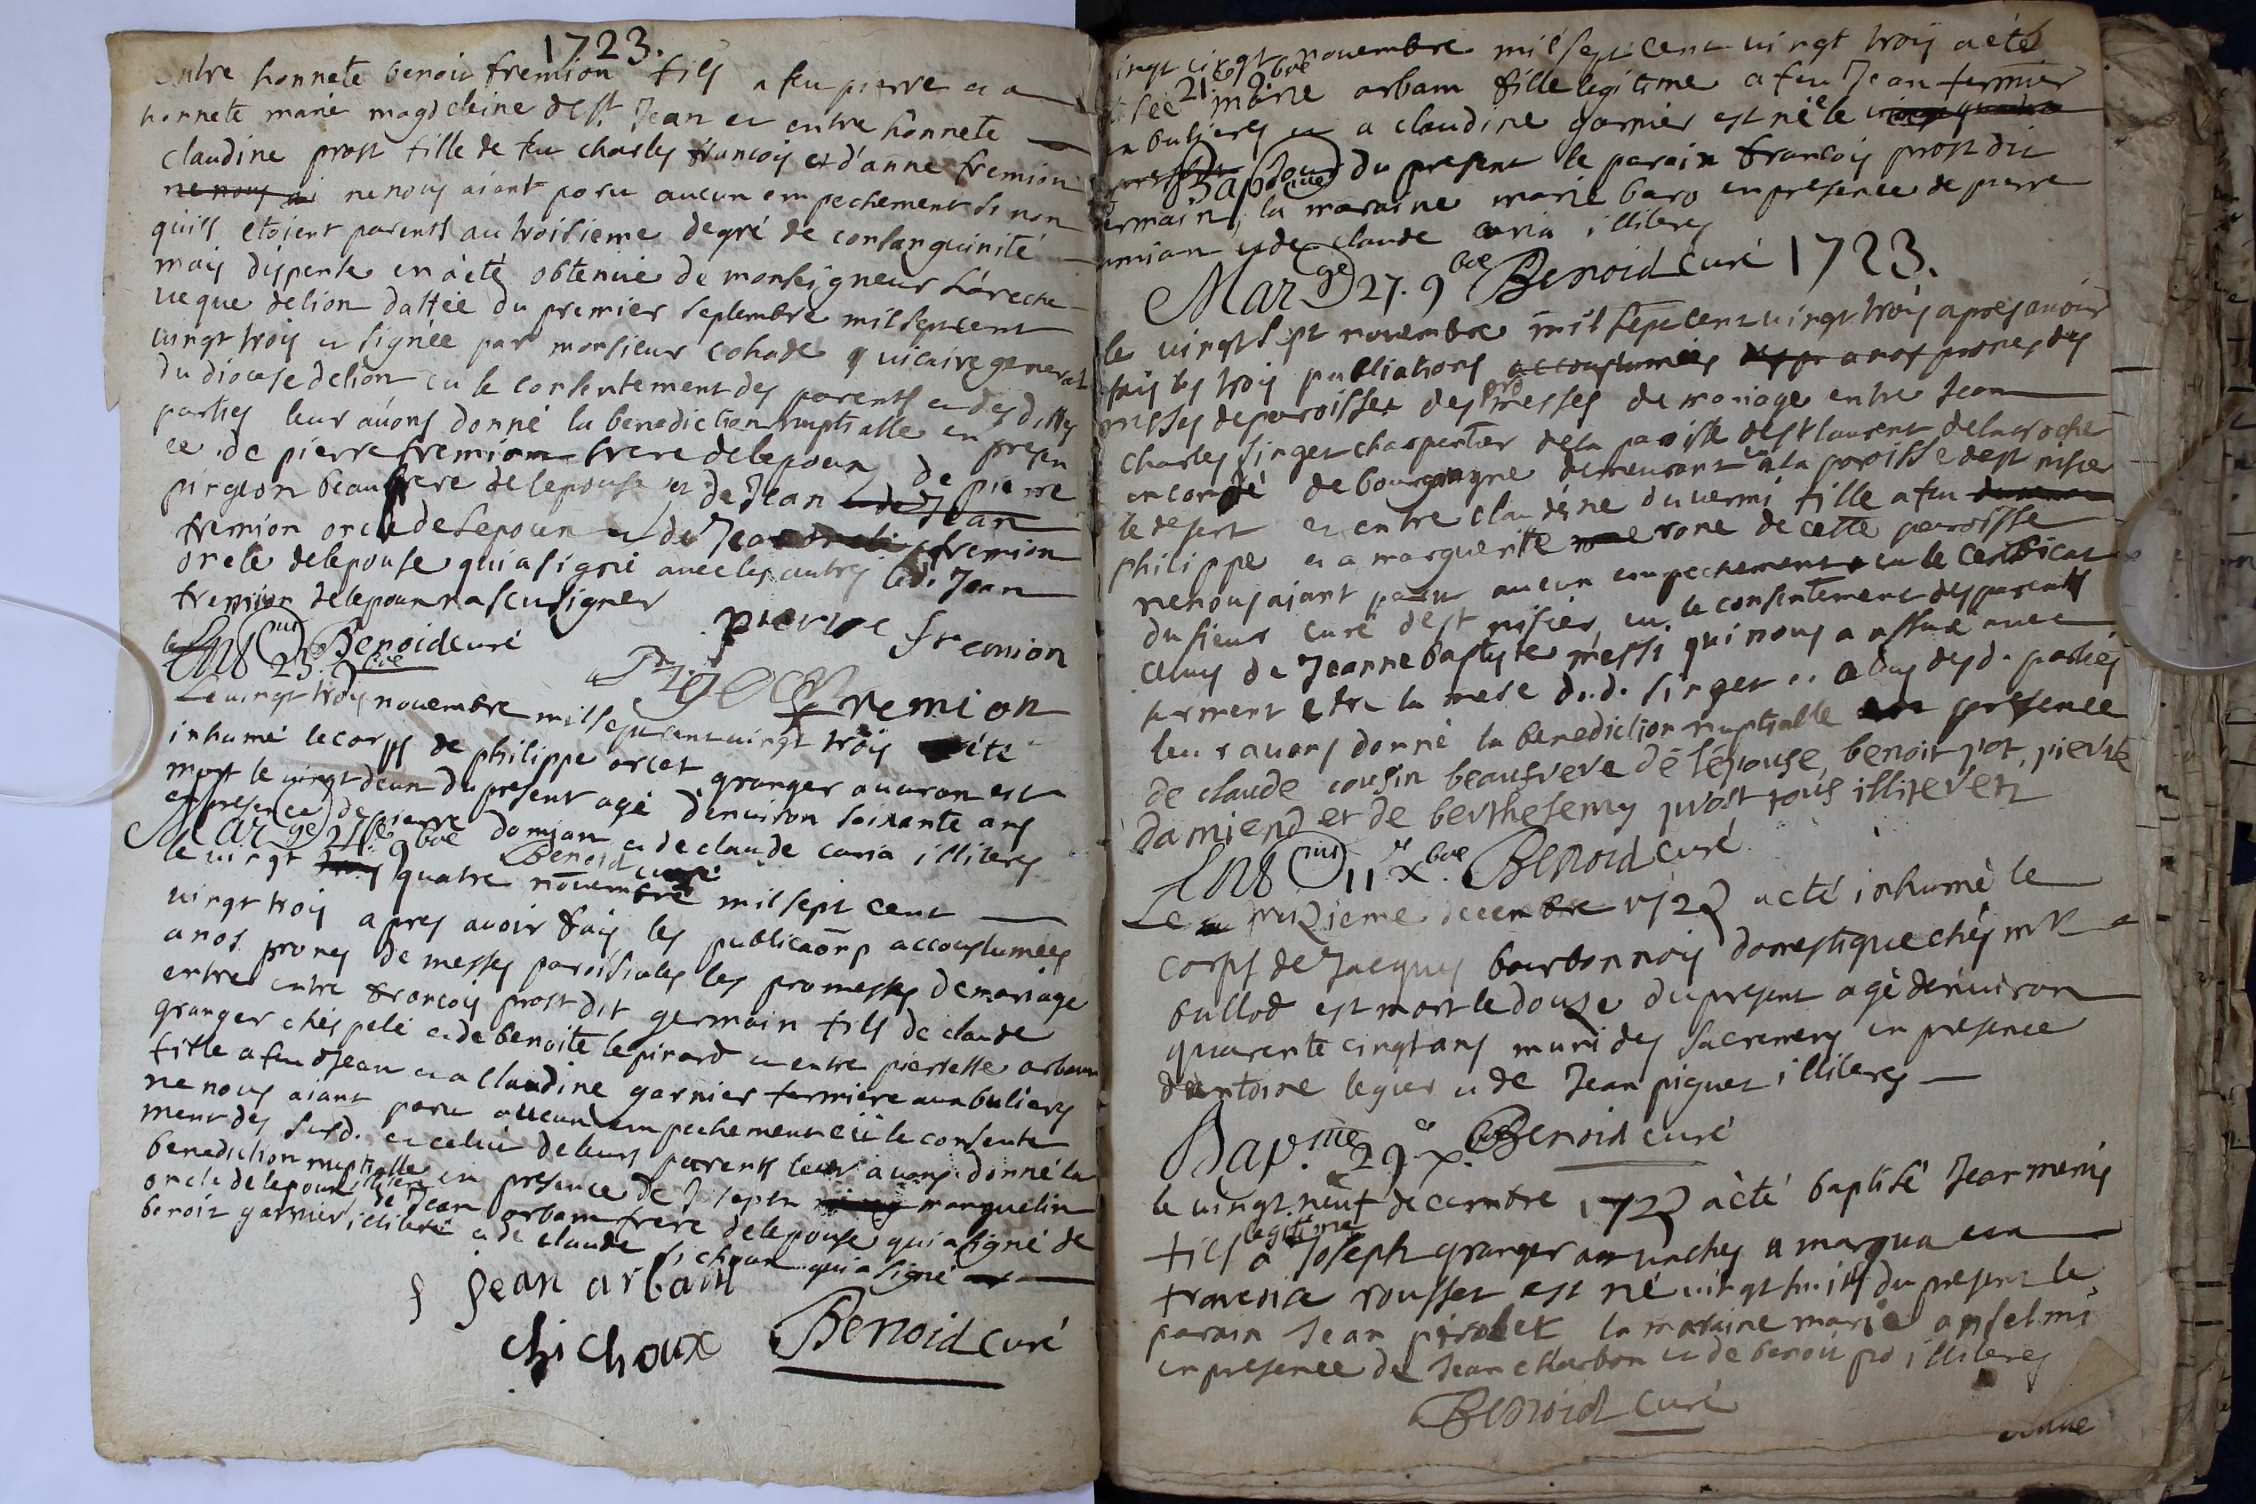 1723.
entre honnete benoit fremion fils a feu pierre et a
honnete marie magdeleine de st. Jean et entre honnete
claudine prost fille de feu charles françois et d'anne fremion
ne nous ai ne nous aiant paru aucun empechement si non
quils etoient parents au troisieme degré de consanguinité
mais dispense en a été obtenuë de monseigneur L'areche
veque de lion dattée du premier septembre mil sept cent
vingt trois et signée par monsieur cohade vicaire general
du diocese de lion eu le consentement des parents et des dittes
parties leur avons donné la benediction nuptialle en presen
ce de pierre fremion frere de lepoux de pierre
pirgeon beaufrere de lepouse et de Jean
fremion oncle de lepoux et de Jean fremion
oncle de lepouse qui a signé avec les autres led. Jean
fremion de lepoux na scu signer
pierre fremion
Benoid curé
fremion
23. 9bre
Le vingt trois novembre mil sept cent vingt trois a été
inhumé le corps de philippe orcet granger au varon est
mort le vingt deux du present agé d'environ soixante ans
en presence de pierre damian et de claude caria illiteres
Benoid curé
Marge 24e 9bre
le vingt quatre novembre mil sept cent
vingt trois apres avoir fais les publicaôns accoustumées
a nos prones de messes paroissiales les promesses de mariage
entre entre françois prost dit germain fils de claude
granger chés pelé et de benoite lepinard et entre pierrette arbam
fille a feu Jean et a claudine garnier fermiere aux buliers
ne nous aiant paru aucun empechement eü le consente
ment des susd. et celui de leurs parents leur avons donné la
benediction nuptialle en presence de Joseph manguelin
oncle de lepoux illitere de Jean arbam frere de lepouse qui a signé de
benoit garnier illiteré et de claude sichoux qui a signé
Jean arbam
chichoux Benoid curé
vingt cinq novembre mil sept cent vingt trois a été
21e 9bre
marie arbam fille legitime a feu Jean fermier
buliers et a claudine garnier est née le
Baptme
jour du present le parain françois prost dit
germain, la maraine marie baro en presence de pierre
damian et de claude caria illiteres
Marge 27. 9bre Benoid curé 1723.
le vingt sept novembre mil sept cent vingt trois apres avoir
fais les trois publications accoustumées a nos prones des
messes de paroisse des promesses de mariage entre Jean
charles singer charpentier de la paroisse de st laurent de la roche
en comté de bourgogne demeurant en la paroisse de st nisier
le desert et entre claudine duvermi fille a feu
philippe et a marguerite rone de cette paroisse
ne nous aiant paru aucun empechement eu le certificat
du sieur curé de st nisier eu le consentement des parents
celuy de Jeanne baptyste messi qui nous a assuré avec
serment etre la mere dud. singer et celuy desd. parties
leur avons donné la benediction nuptialle en presence
de claude cousin beaufrere de lépouse, benoit pot, pierre
damiend et de berthelemy prost tous illiterez
Benoid curé
11e Xbre
Le onzieme decembre 1723 a eté inhumé le
corps de Jacques bourbonnois domestique chés mr
bullod est mort le douze du present agé denviron
quarente cinq ans muni des sacremens en presence
dantoine legier et de Jean piguet illiteres
Bap.me 29e Xbre Benoid curé
le vingt neuf decembre 1723 a eté baptisé Jean menis
fils legitime a Joseph granger aux vaches et a
rousset est né vingt huis du present le
parain Jean pirolet la maraine marie anselmi
en presence de Jean charbon et de benoit pro illiteres
Benoid curé